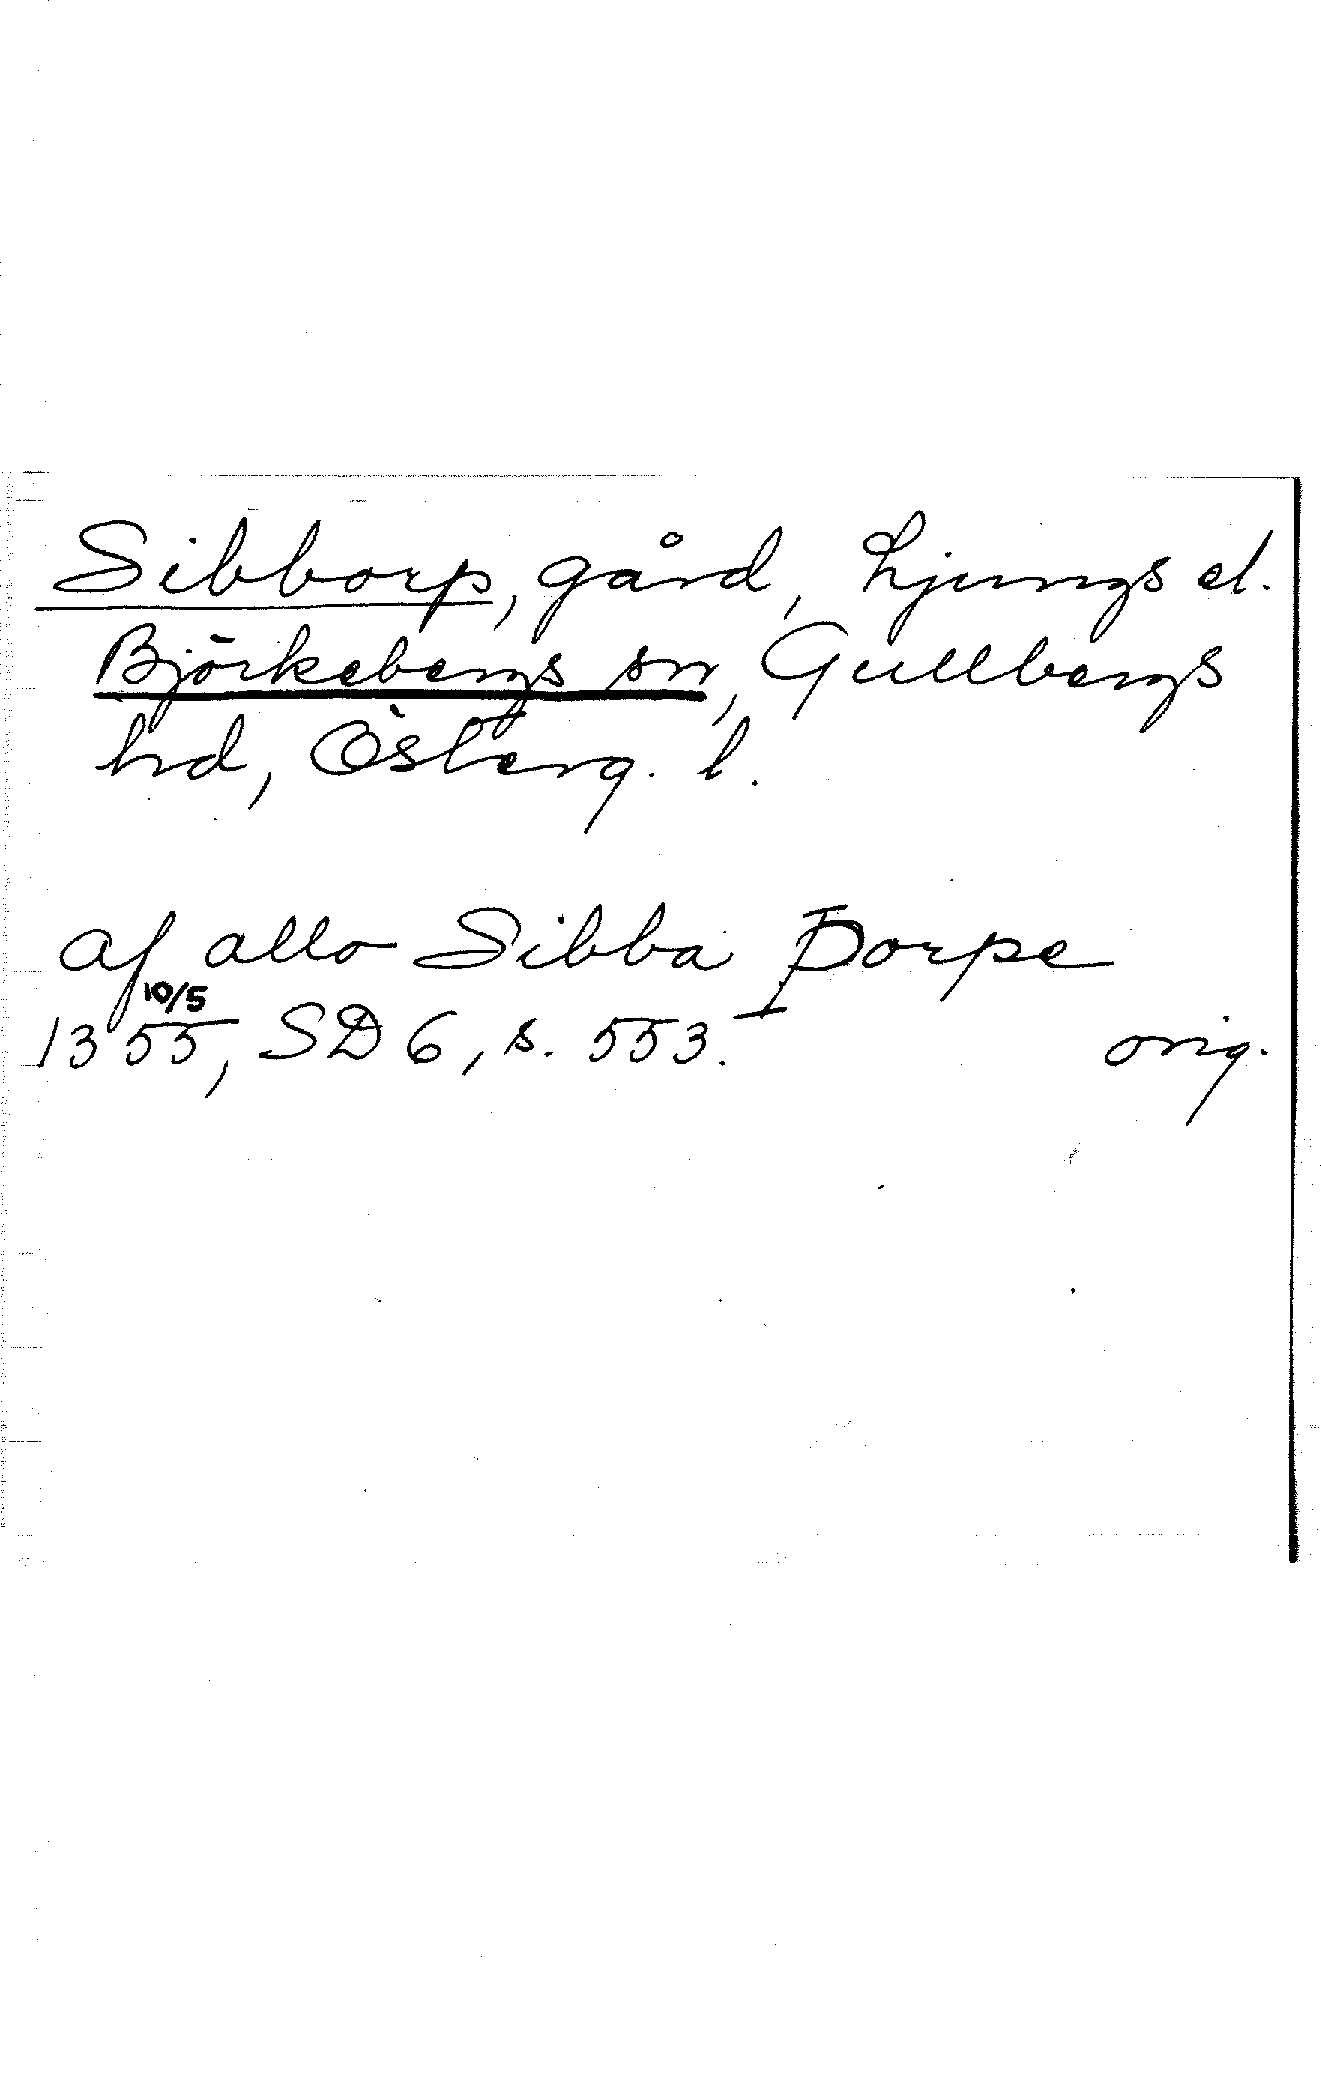 Sibborp, gård, Ljungs el.
Björkebergs sn, Gullbergs
hd, Österg. l.
af allo Sibba Þorpe
10/5
1355, SD 6, s. 553. orig.